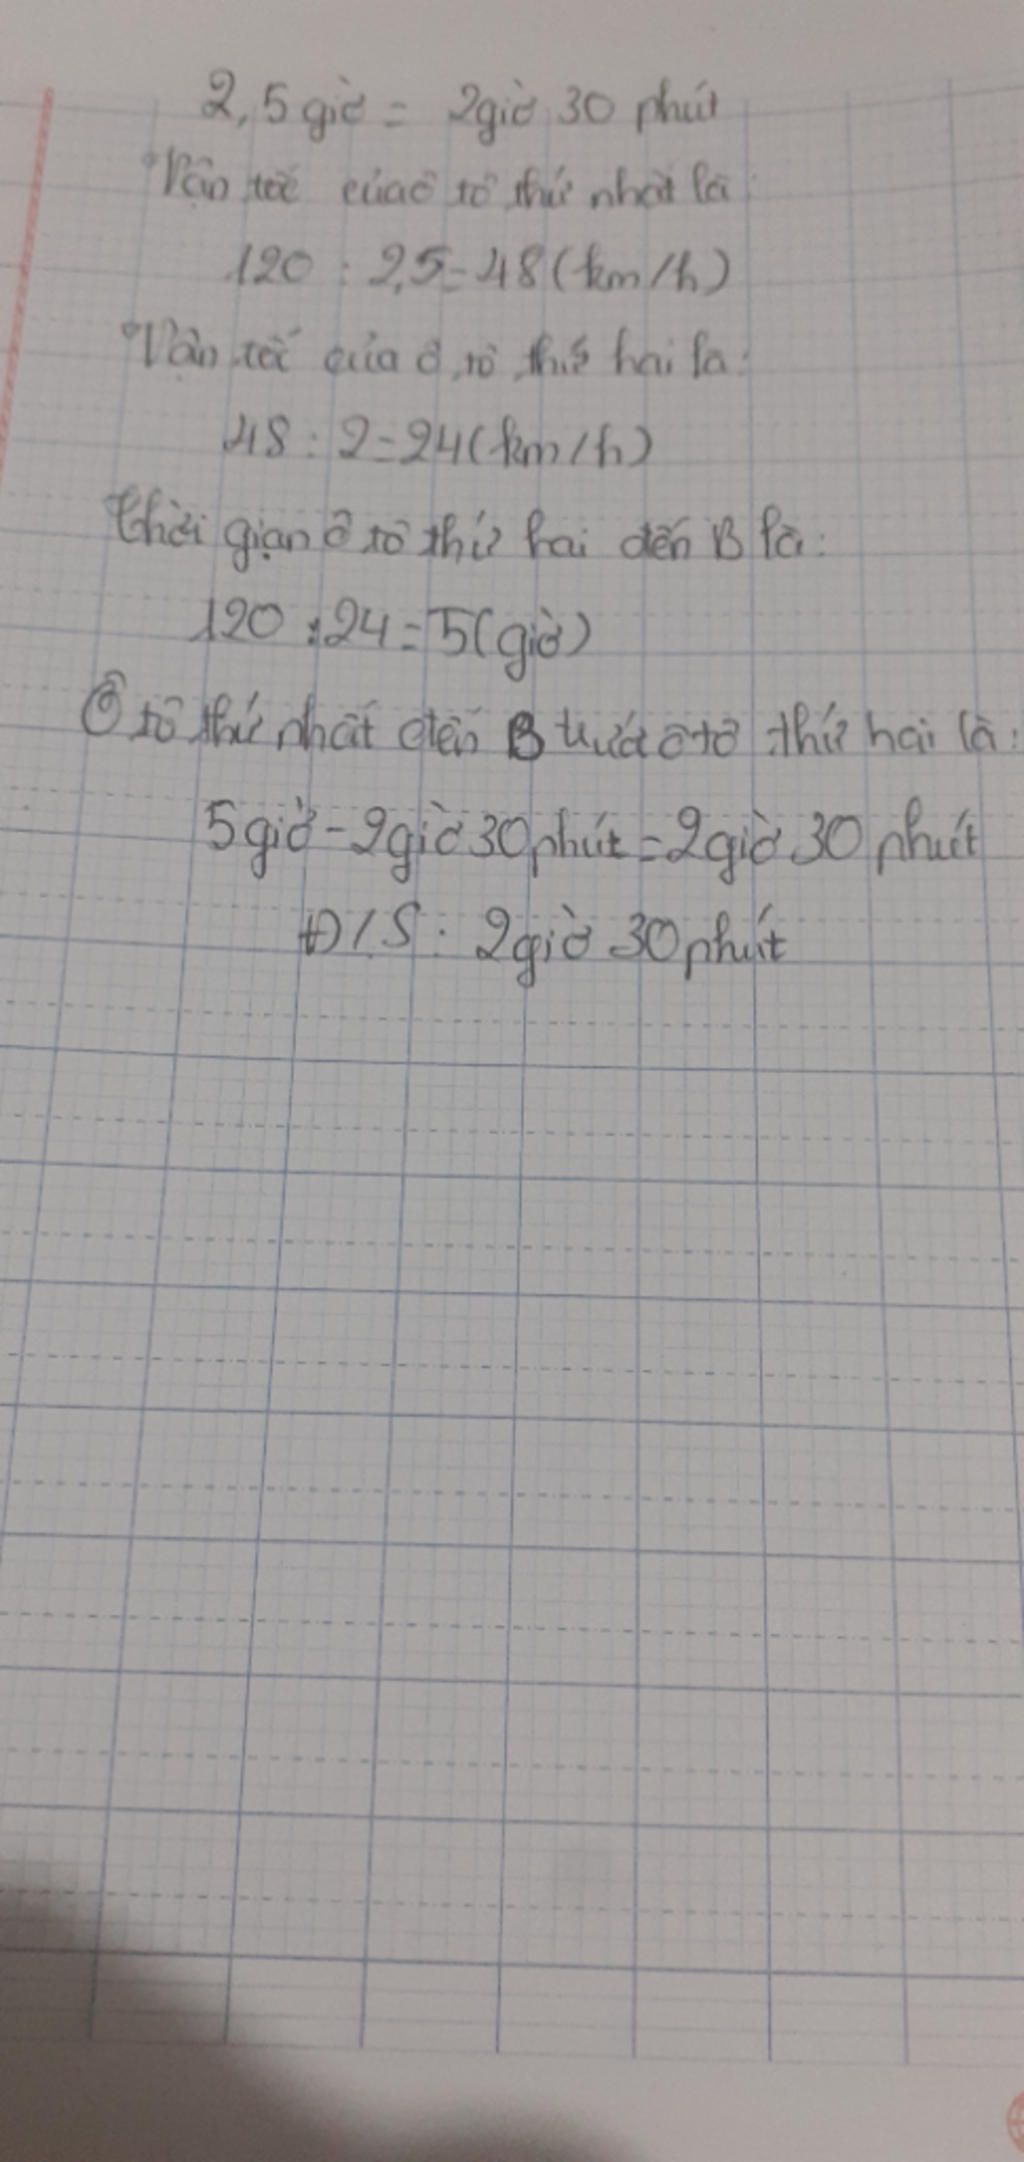 2,5 giờ = 2giờ 30 phút
Vận tốc củaô tô thứ nhất là
120 : 2,5=48(km/h)
Vận tốc của ô tô thứ hai là:
48 : 2=24(km/h)
thời gian ô tô thứ hai đến B là:
120 :24=5(giờ)
Ô tô thứ nhất đến B trước ô tô thứ hai là:
5giờ-2giờ30phút=2giờ 30 phút
Đ/S: 2giờ 30phút